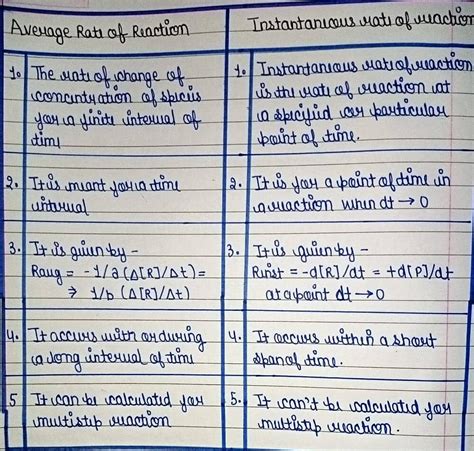 Average Rate of Reaction
Instantaneous rate of reaction
1. The rate of change of
concentration of speceis
for a finite interval of
time
1. Instantaneous rate of reaction
is the rate of reaction at
a specified or particular
point of time.
2. It is meant for a time
interval
2. It is for a point of time in
a reaction when dt → 0
3. It is given by -
Ravg = -1/a (Δ[R]/Δt) =
⇒ 1/b (Δ[R]/Δt)
3. It is given by -
Rinst = -d[R]/dt = +d[P]/dt
at a point dt → 0
4. It occurs with or during
a long interval of time
4. It occurs within a short
span of time.
5 It can be calculated for
multistep reaction
5. It can't be calculated for
multistep reaction.